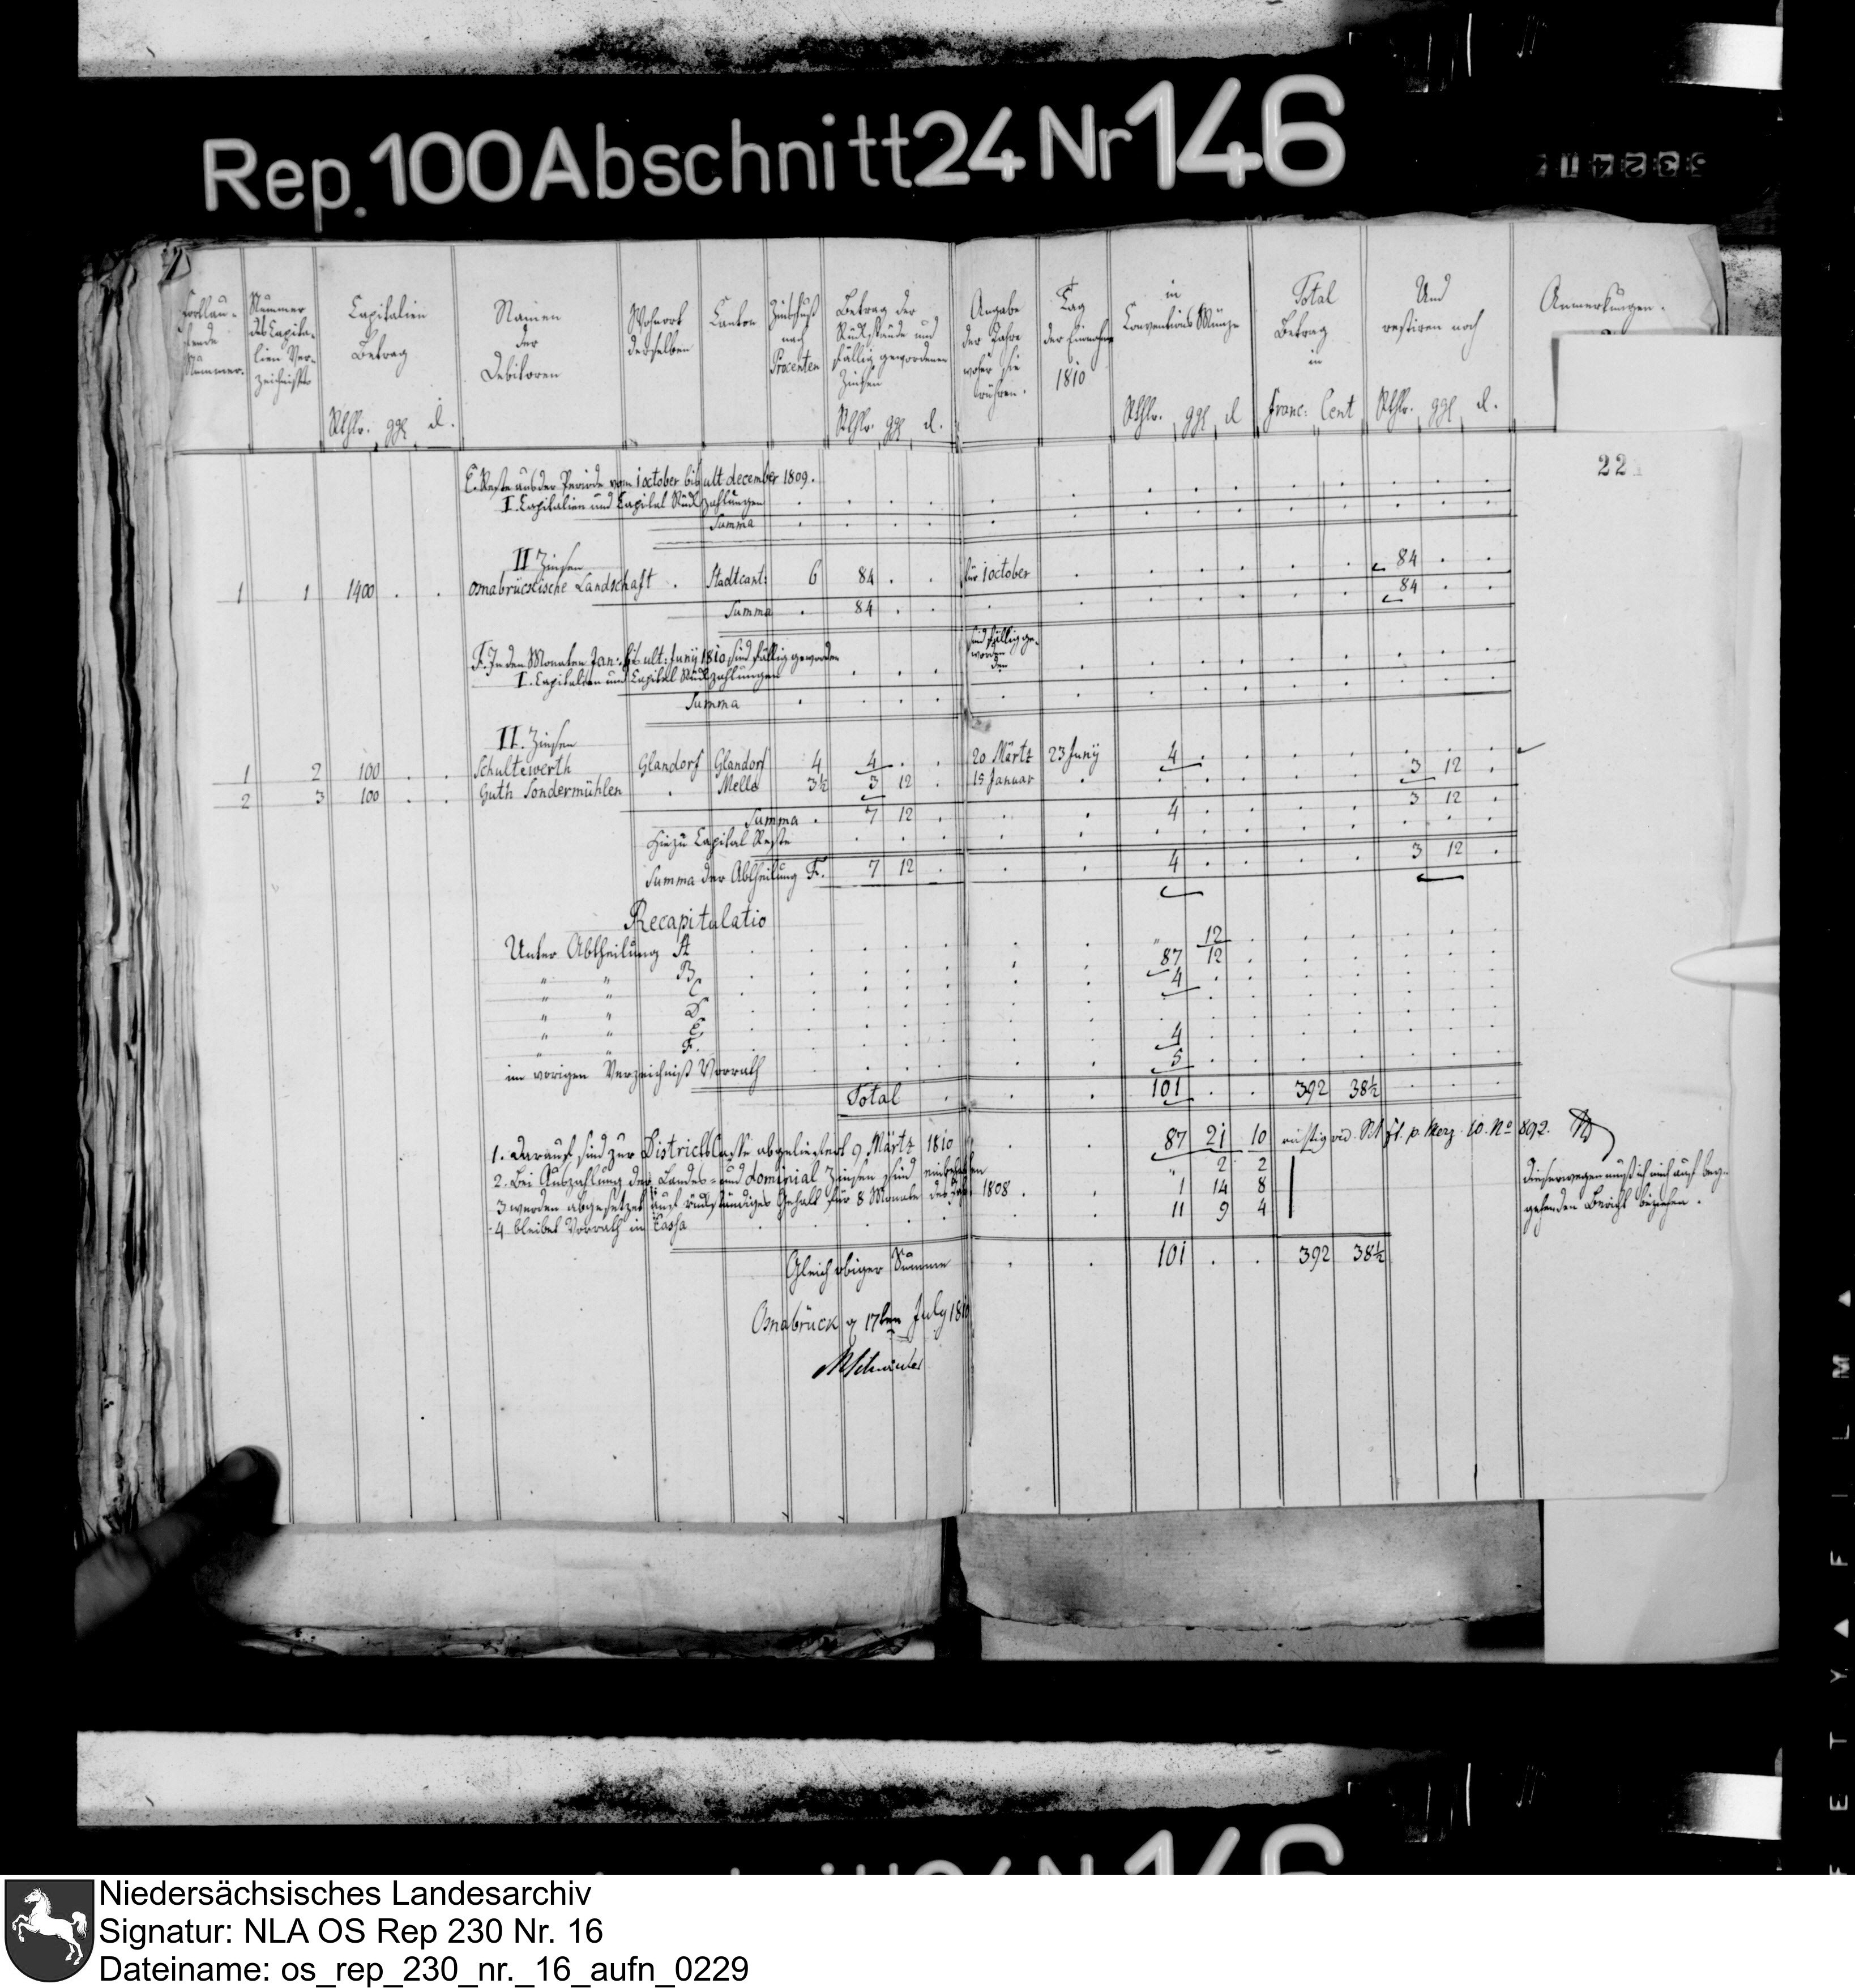 Rep. 100 Abschnitt 24 Nr 146
Fortlau-
fende
Nummer.
Nummer
des Capita-
lien Ver-
zeichnißes
Capitalien
Betrag
Rthlr. ggl d.
Namen
der
Debitoren
Wohnort
derselben
Canton
Zinsfuß
nach
Procenten
Betrag der
Rückstände und
fällig gewordenen
Zinsen
Rthlr. ggl d.
Angabe
der Jahre
woher sie
rühren.
Tag
der Einnahme
1810
in
Conventions Münze
Rthlr. ggl d
Total
Betrag
in
Franc: Cent
Und
restiren noch
Rthlr. ggl d.
Anmerkungen.
22
E. Reste aus der Periode vom 1 october bis ult december 1809.
I. Capitalien und Capital Rückzahlungen
Summa
II Zinsen
1 1 1400 . . osnabrückische Landschaft . Stadtcant: 6 84 . . für 1 october . . . . . . 84 . .
Summa . 84 . . 84 . .
F. In den Monaten Jan: bis ult: Juny 1810 sind fällig geworden
sind fällig ge-
worden
I. Capitalien und Capital Rückzahlungen
Summa
II. Zinsen
1 2 100 . . Schultewerth Glandorf Glandorf 4 4 . . 20 Märtz 23 Juny 4 . . . . . . .
2 3 100 . . Guth Sondermühlen . Melle 3½ 3 12 . 15 Januar . . . . . . 3 12 .
Summa . 7 12 . . . 4 . . . . 3 12 .
Hiezu Capital Reste
Summa der Abtheilung F. 7 12 . . . 4 . . . . 3 12 .
Recapitulatio
Unter Abtheilung A " 12 .
" " B 87 12 .
" " C 4 . .
" " D
" " E
" " F. 4 . .
im vorigen Verzeichniß Vorrath 5 . .
Total 101 . . 392 38½
1. darauf sind zur Districts Casse abgeliefert 9 Märtz 1810 87 21 10 p. Merz. 10. No 892.
2. Bei Auszahlung der Landes- und Dominial Zinsen sind " 2 2
3 werden abgesetzet auf rückständiges Gehalt für 8 Monate des Jahrs 1808 . 1 14 8
4 bleibet Vorrath in Cassa 11 9 4
Dieserwegen muß ich mich auf
gehenden Bericht beziehen.
Gleich obiger Summe 101 . . 392 38½
Osnabrück d 17ten July 1810
Niedersächsisches Landesarchiv
Signatur: NLA OS Rep 230 Nr. 16
Dateiname: os_rep_230_nr._16_aufn_0229